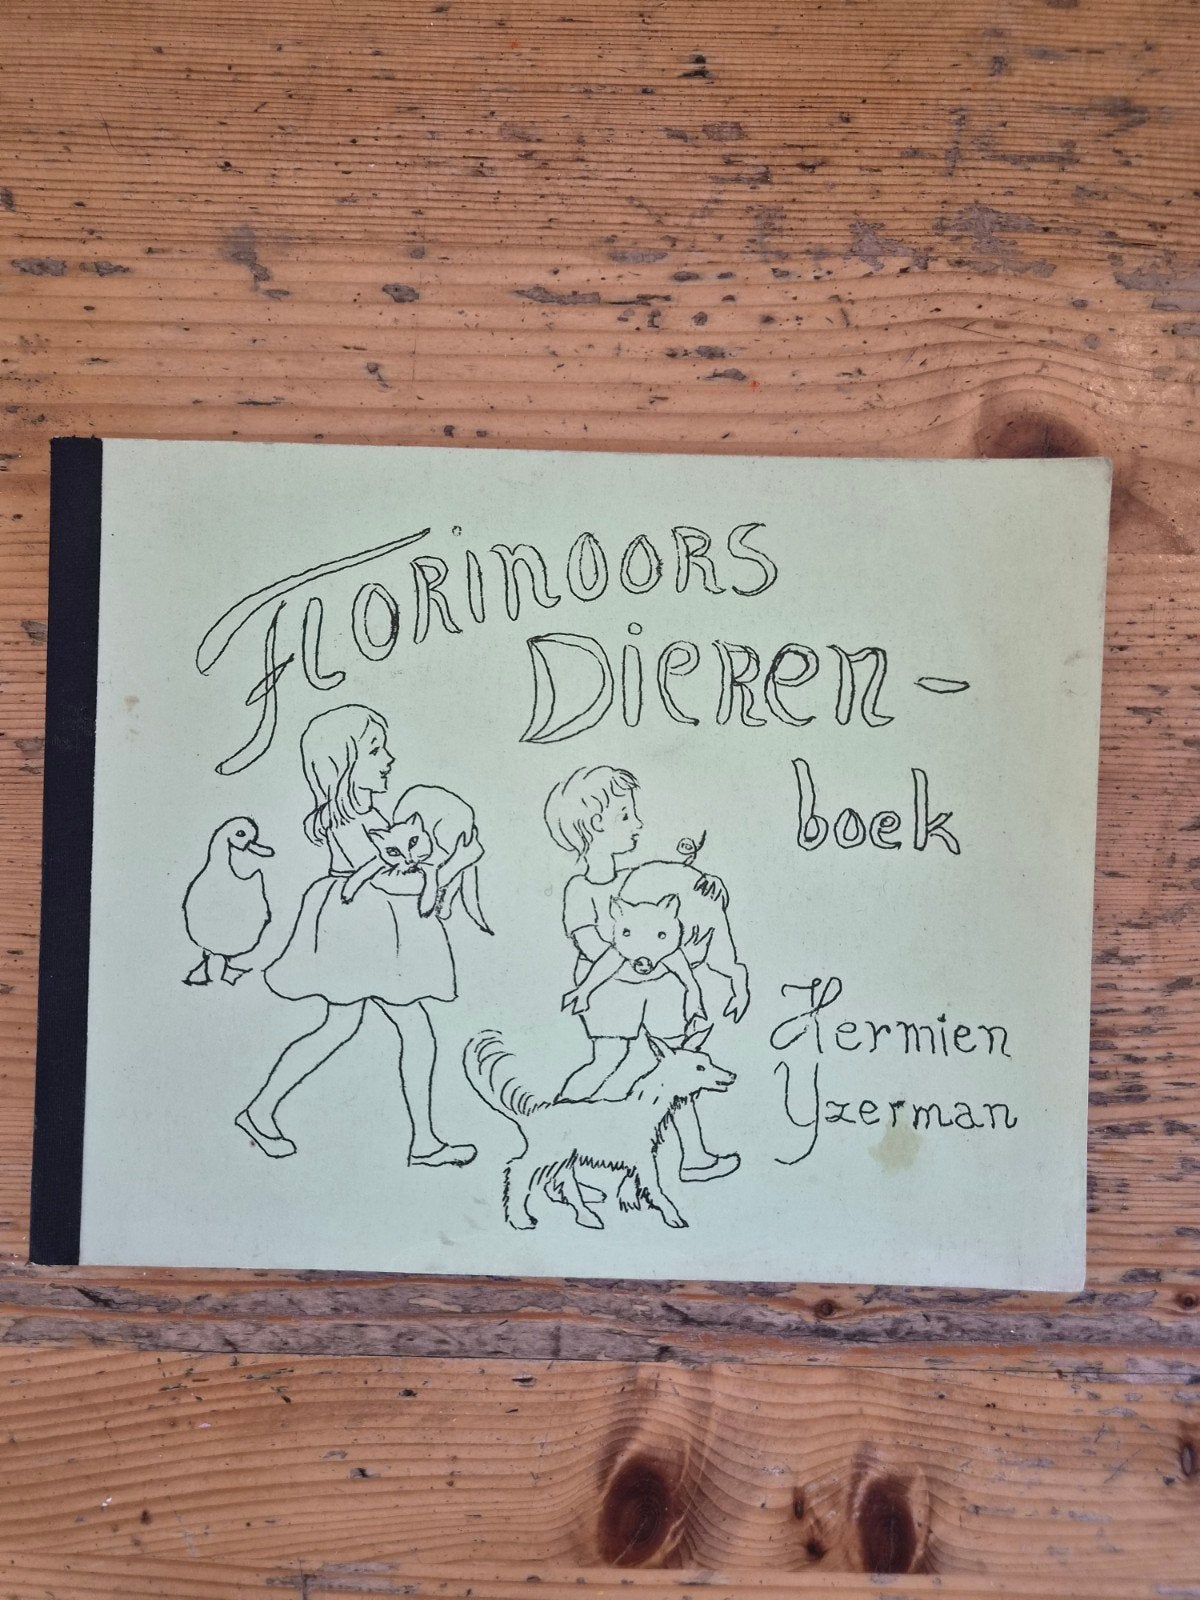 Florinoors
Dieren-
boek
Hermien
Yzerman